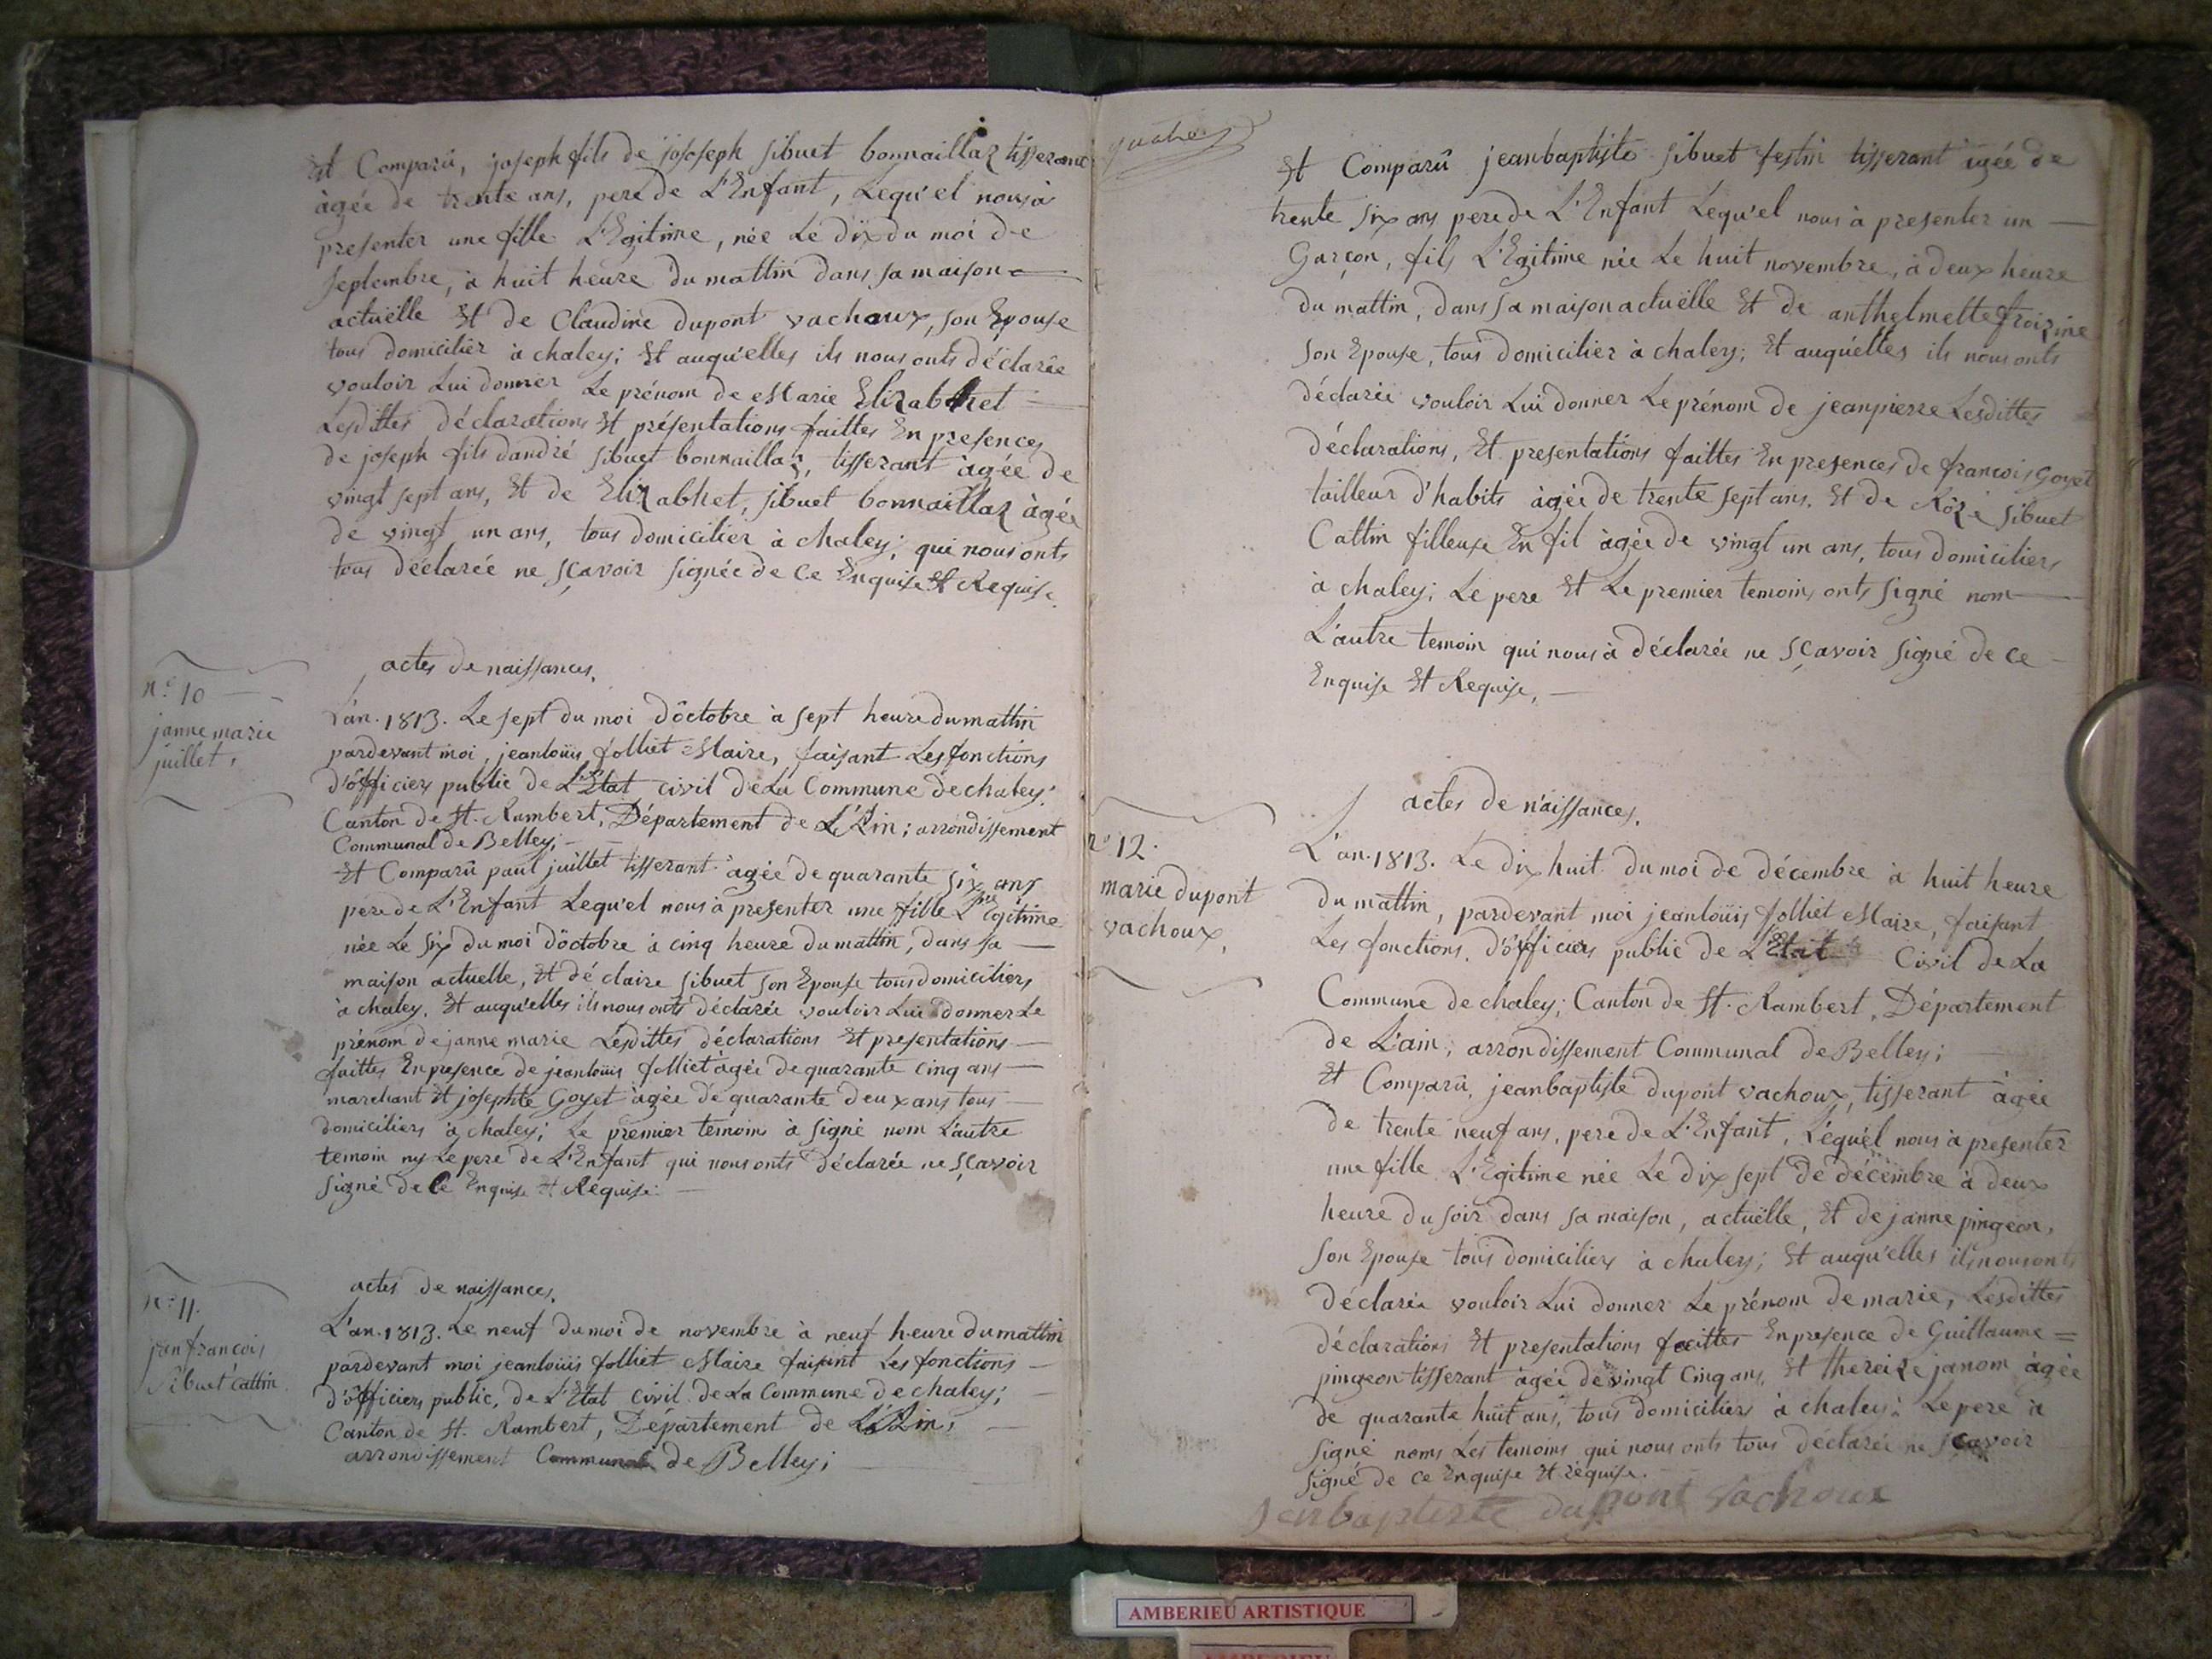 Et Comparû, joseph fils de joseph sibuet bonnaillaz tisserant
àgée de trente ans, pere de L'Enfant, Lequ'el nous à
presenter une fille L'Egitime, née Le dix du moi de
septembre, à huit heure du mattin dans sa maison
actuëlle Et de Claudine dupont vachoux, son Epouse
tous domicilier à chaley; Et auqu'elles ils nous onts déclarée
vouloir Lui donner Le prénom de Marie Elizabhet
Lesdittes déclarations Et présentations faittes En presences
de joseph fils dandré sibuet bonnaillaz, tisserant àgée de
vingt sept ans, Et de Elizabhet, sibuet bonnaillaz àgée
de vingt un ans, tous domicilier à chaley; qui nous onts
tous déclarée ne sçavoir signée de Ce Enquise Et Requise.
actes de naissances.
n.o 10
janne marie
juillet,
L'an. 1813. Le sept du moi d'octobre à sept heure du mattin
pardevant moi, jeanlouis folliet Maire, faisant Les fonctions
d'officiers public de L'Etat civil de La Commune de chaley;
Canton de St. Rambert, Département de L'Ain; arrondissement
Communal de Belley;
Et Comparû paul juillet tisserant àgée de quarante six ans
pere de L'Enfant Lequ'el nous à presenter une fille L'Egitime
née Le six du moi d'octobre à cinq heure du mattin, dans sa
maison actuelle, Et dé claire sibuet son Epouse tous domiciliers
à chaley, Et auqu'elles ils nous onts déclarée vouloir Lui donner Le
prénom de janne marie Lesdittes déclarations Et presentations
faittes En presence de jeanlouis folliet àgée de quarante cinq ans
marchant Et josephte Goyet àgée de quarante deux ans tous
domiciliers à chaley; Le premier temoins à signé nom L'autre
temoin ny Le pere de L'Enfant qui nous onts déclarée ne sçavoir
signé de Ce Enquise Et Requise.
actes de naissances.
n.o 11.
jean francois
sibuet Cattin
L'an. 1813. Le neuf du moi de novembre à neuf heure du mattin
pardevant moi jeanlouiis folliet Maire faisent Les fonctions
d'officiers public, de L'Etat civil de La Commune de chaley;
Canton de St. Rambert, Département de L'Ain;
arrondissement Communal de Belley;
Et Comparû jeanbaptiste sibuet festin tisserant agée de
trente six ans pere de L'Enfant Lequ'el nous à presenter un
Garçon, fils L'Egitime née Le huit novembre, à deux heure
du mattin, dans sa maison actuëlle Et de anthelmette froizine
son Epouse, tous domicilier à chaley; Et auqu'elles ils nous onts
déclarée vouloir Lui donner Le prénom de jeanpierre Lesdittes
déclarations, Et presentations faittes En presences de francois Goyet
tailleur d'habits àgée de trente sept ans. Et de Rôze sibuet
Cattin filleuse En fil àgée de vingt un ans, tous domiciliers
à chaley; Le pere Et Le premier temoins onts signé nom
L'autre temoin qui nous à déclarée ne sçavoir signé de ce
Enquise Et Requise,
actes de n'aissances.
n.o 12.
marie dupont
vachoux,
L'an. 1813. Le dix huit du moi de décembre à huit heure
du mattin, pardevant moi jeanlouiis folliet Maire, faisant
Les fonctions, d'officiers public de L'Etat Civil de La
Commune de chaley; Canton de St. Rambert, Département
de L'ain; arrondissement Communal de Belley;
Et Comparû, jeanbaptiste dupont vachoux, tisserant àgée
de trente neuf ans, pere de L'Enfant, Lequ'el nous à presenter
une fille L'Egitime née Le dix sept de décembre à deux
heure du soir dans sa maison, actuëlle, Et de janne pingeon,
son Epouse tous domiciliers à chaley; Et auqu'elles ils nous onts
déclarée vouloir Lui donner Le prénom de marie, Lesdittes
déclarations Et presentations faittes En presence de Guillaume
pingeon tisserant àgée de vingt Cinq ans, Et thereize janom àgée
de quarante huit ans, tous domiciliers à chaley; Le pere à
signé noms Les temoins qui nous onts tous déclarée ne sçavoir
signé de ce Enquise Et réquise.
Jenbaptiste dupont vachoux
AMBERIEU ARTISTIQUE